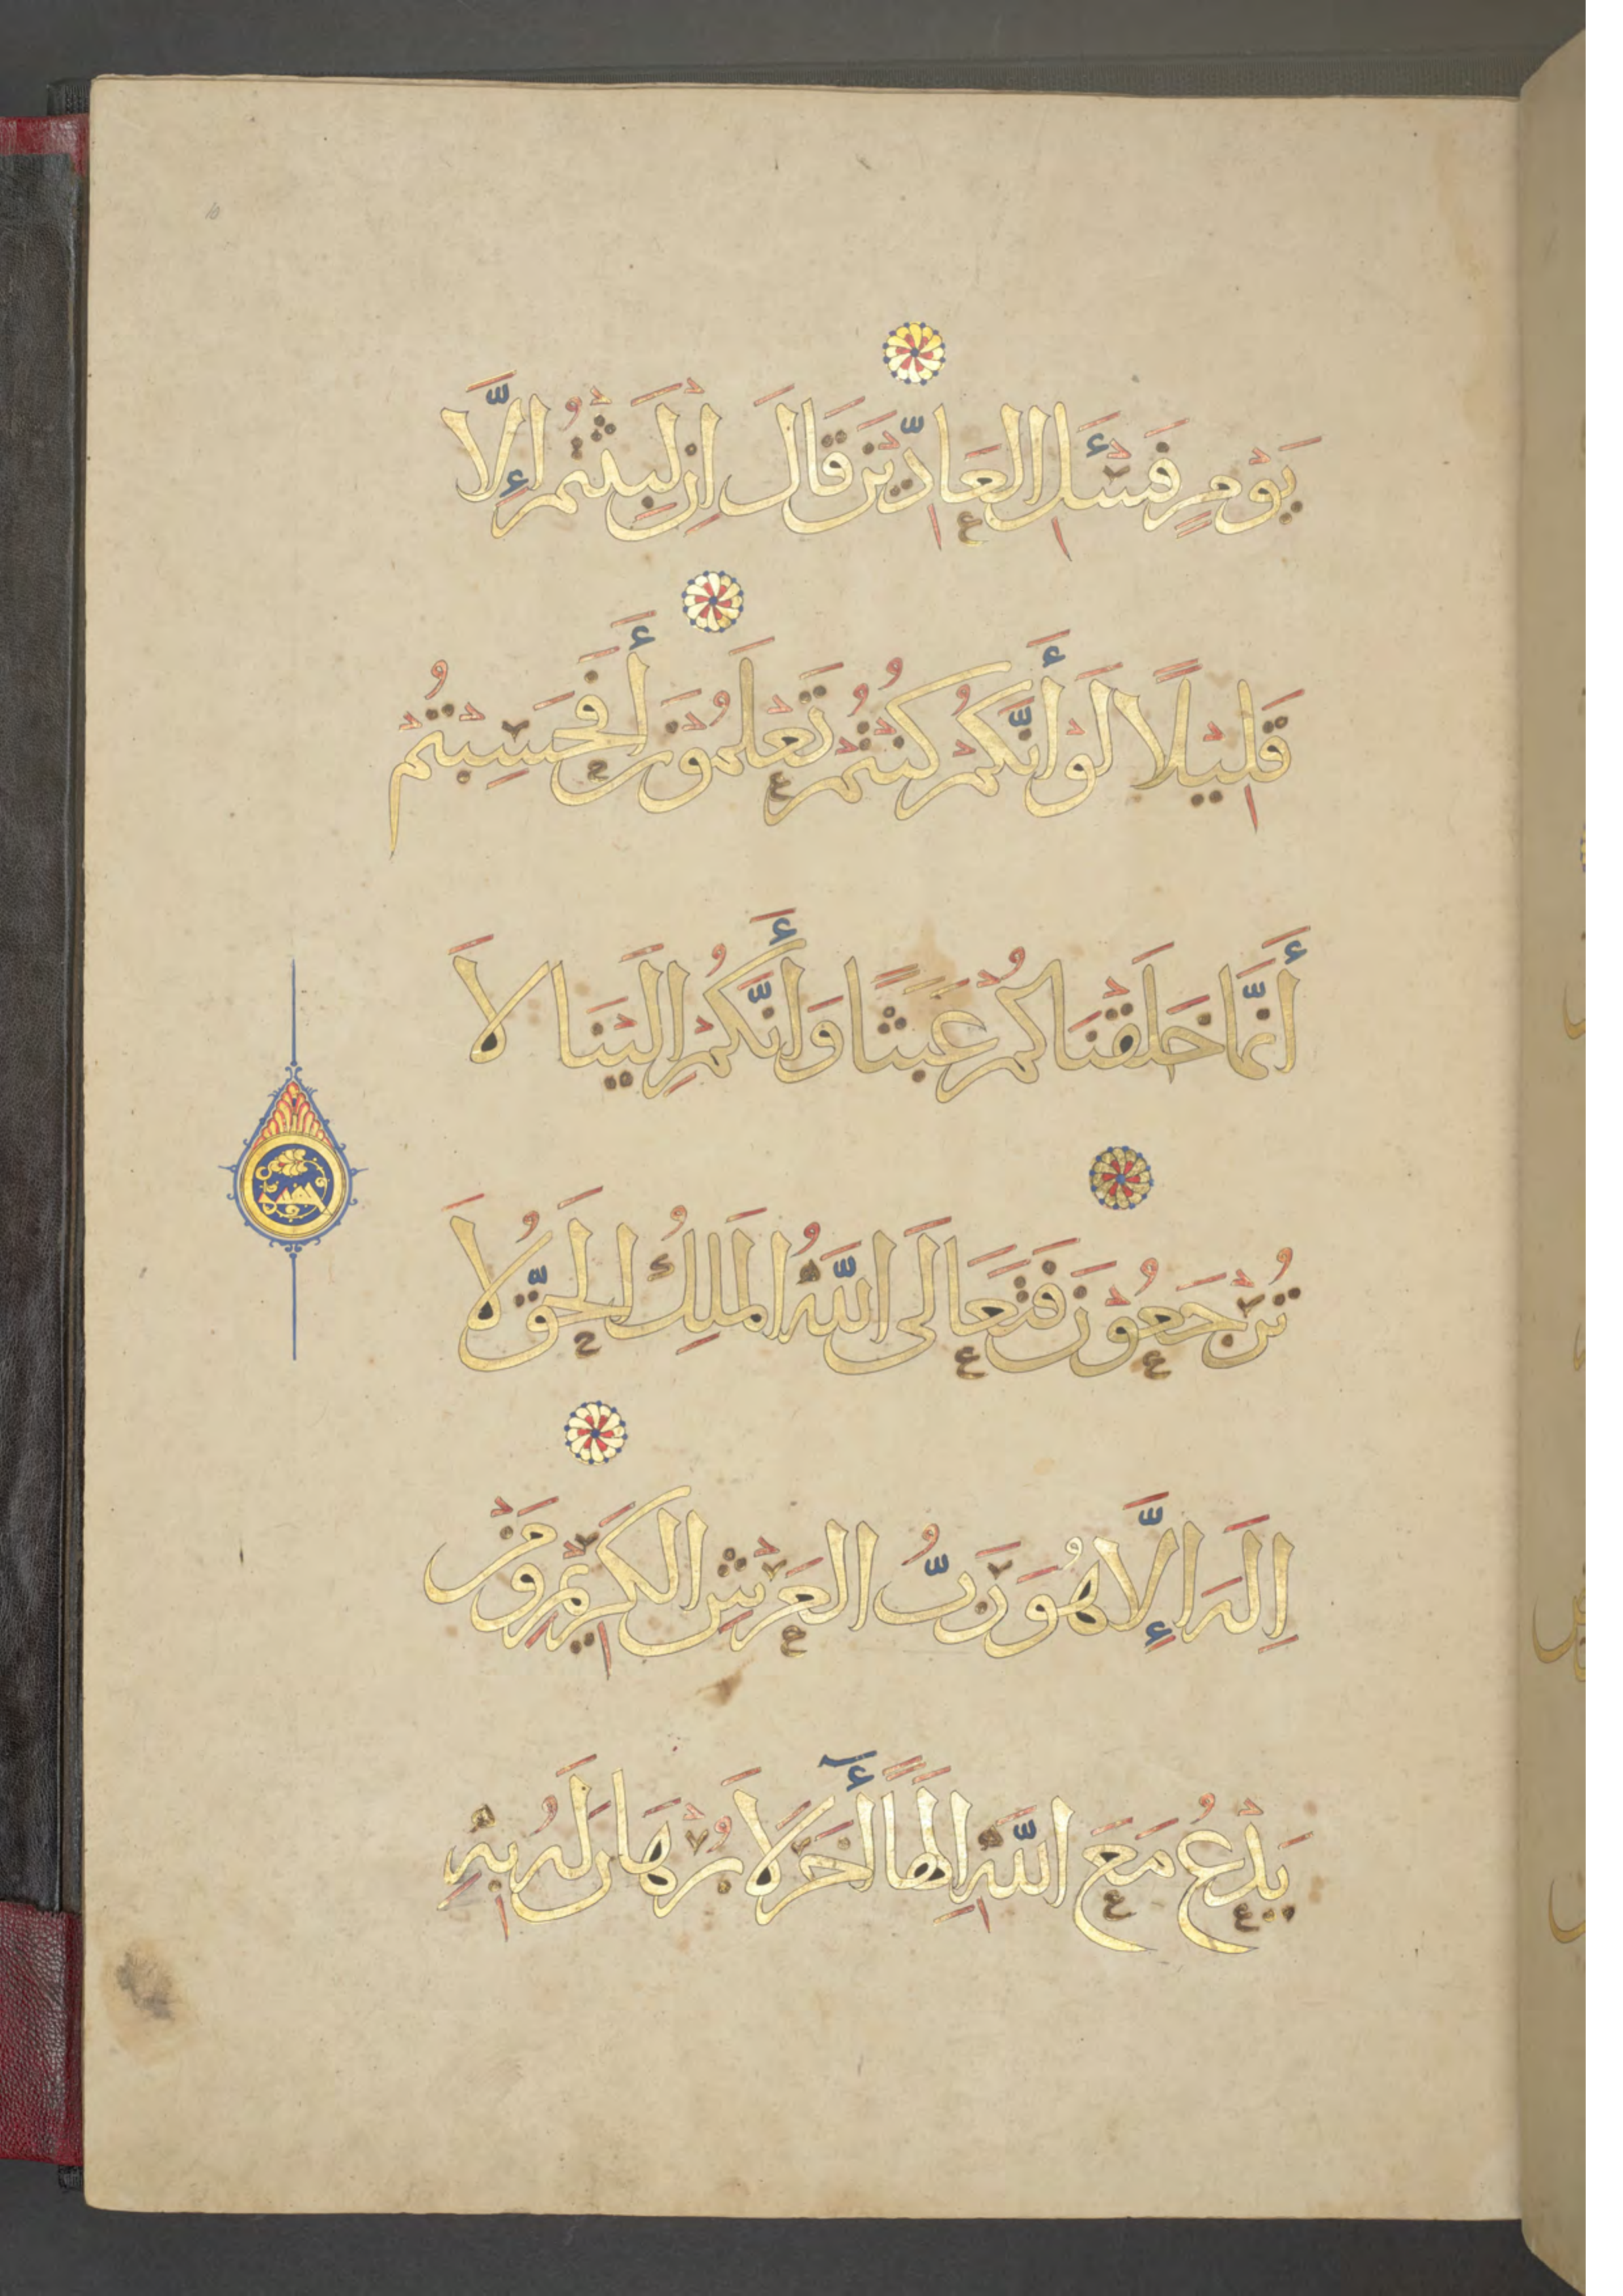 يَوْمٍ فَسْـَٔلِ الْعَادِّينَ قَالَ اِن لَبِثْتُمْ إِلَّا
قَلِيْلًا لَوْ أَنَّكُمْ كُنْتُمْ تَعْلَمُوْنَ أَفَحَسِبْتُمْ
أَنَّمَا خَلَقْنَاكُمْ عَبَثًا وَأَنَّكُمْ اِلَيْنَا لَا
تُرْجَعُوْنَ فَتَعَالَى اللَّهُ الْمَلِكُ الْحَقُّ لَا
اِلَهَ إِلَّا هُوَ رَبُّ الْعَرْشِ الْكَرِيْمِ وَمَنْ
يَدْعُ مَعَ اللَّهِ اِلَهًا أٓخَرَ لَا بُرْهَانَ لَهُ بِهِ